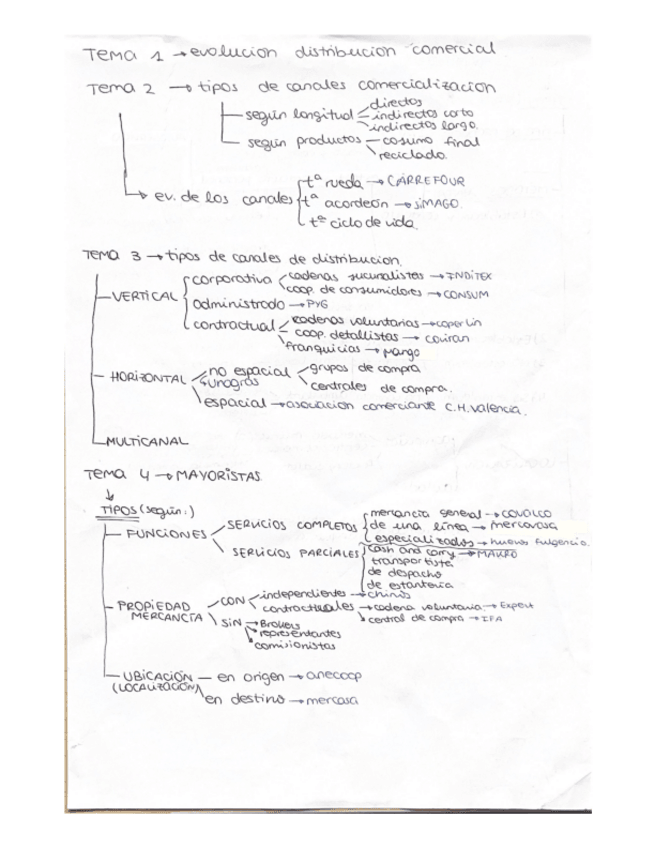 TEMA 1 → evolucion distribucion comercial
Tema 2 → tipos de canales comercialización
según longitud
directos
indirectos corto
indirectos largo.
según productos
cosumo final
reciclado.
ev. de los canales
tª rueda → CARREFOUR
tª acordeón → SIMAGO.
tª ciclo de vida.
TEMA 3 → tipos de canales de distribucion.
VERTICAL
corporativa
cadenas sucursalistas → INDITEX
coop. de consumidores → CONSUM
administrado → PYG
contractual
cadenas voluntarias → coperlin
coop. detallistas → coviran
franquicias → Mango
HORIZONTAL
no espacial
grupos de compra
centrales de compra.
espacial → asociacion comerciante C.H. Valencia.
MULTICANAL
TEMA 4 → MAYORISTAS
TIPOS (según:)
FUNCIONES
SERVICIOS COMPLETOS
mercancia general → COVALCO
de una línea → mercovasa
especializados → huevos fulgencio.
SERVICIOS PARCIALES
cash and carry → MAKRO
transportista
de despacho
de estantería
PROPIEDAD MERCANCÍA
CON
independientes → chinos
contractuales
cadena voluntaria → Expert
central de compra → IFA
SIN
Brokers
representantes
comisionistas
UBICACIÓN
(LOCALIZACIÓN)
en origen → anecoop
en destino → mercasa